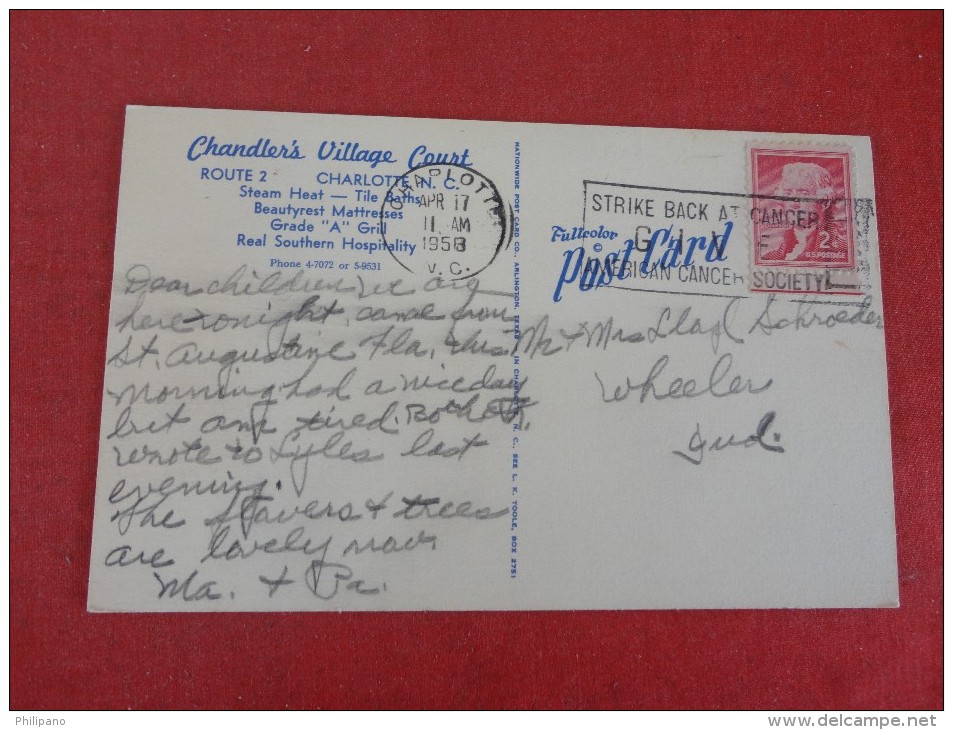 Chandler's Village Court
ROUTE 2 CHARLOTTE N. C.
Steam Heat — Tile Baths
Beautyrest Mattresses
Grade "A" Grill
Real Southern Hospitality
Phone 4-7072 or 5-9531
CHARLOTTE
APR 17
11 AM
1958
N. C.
STRIKE BACK AT CANCER
GIVE
AMERICAN CANCER SOCIETY
Fullcolor
©
Post Card
2¢
U.S. POSTAGE
NATIONWIDE POST CARD CO., ARLINGTON, TEXAS IN CHARLOTTE, N. C., SEE L. K. TOOLE, BOX 2751
Dear children, we are
here tonight, came from
St. Augustine Fla. this
morning had a nice day
but am tired. Both
wrote to Lyles last
evening.
The flowers & trees
are lovely now
Ma. & Pa.
Mr & Mrs Lloyd Schroeder
Wheeler
Ind.
Philipano
delcampe.net